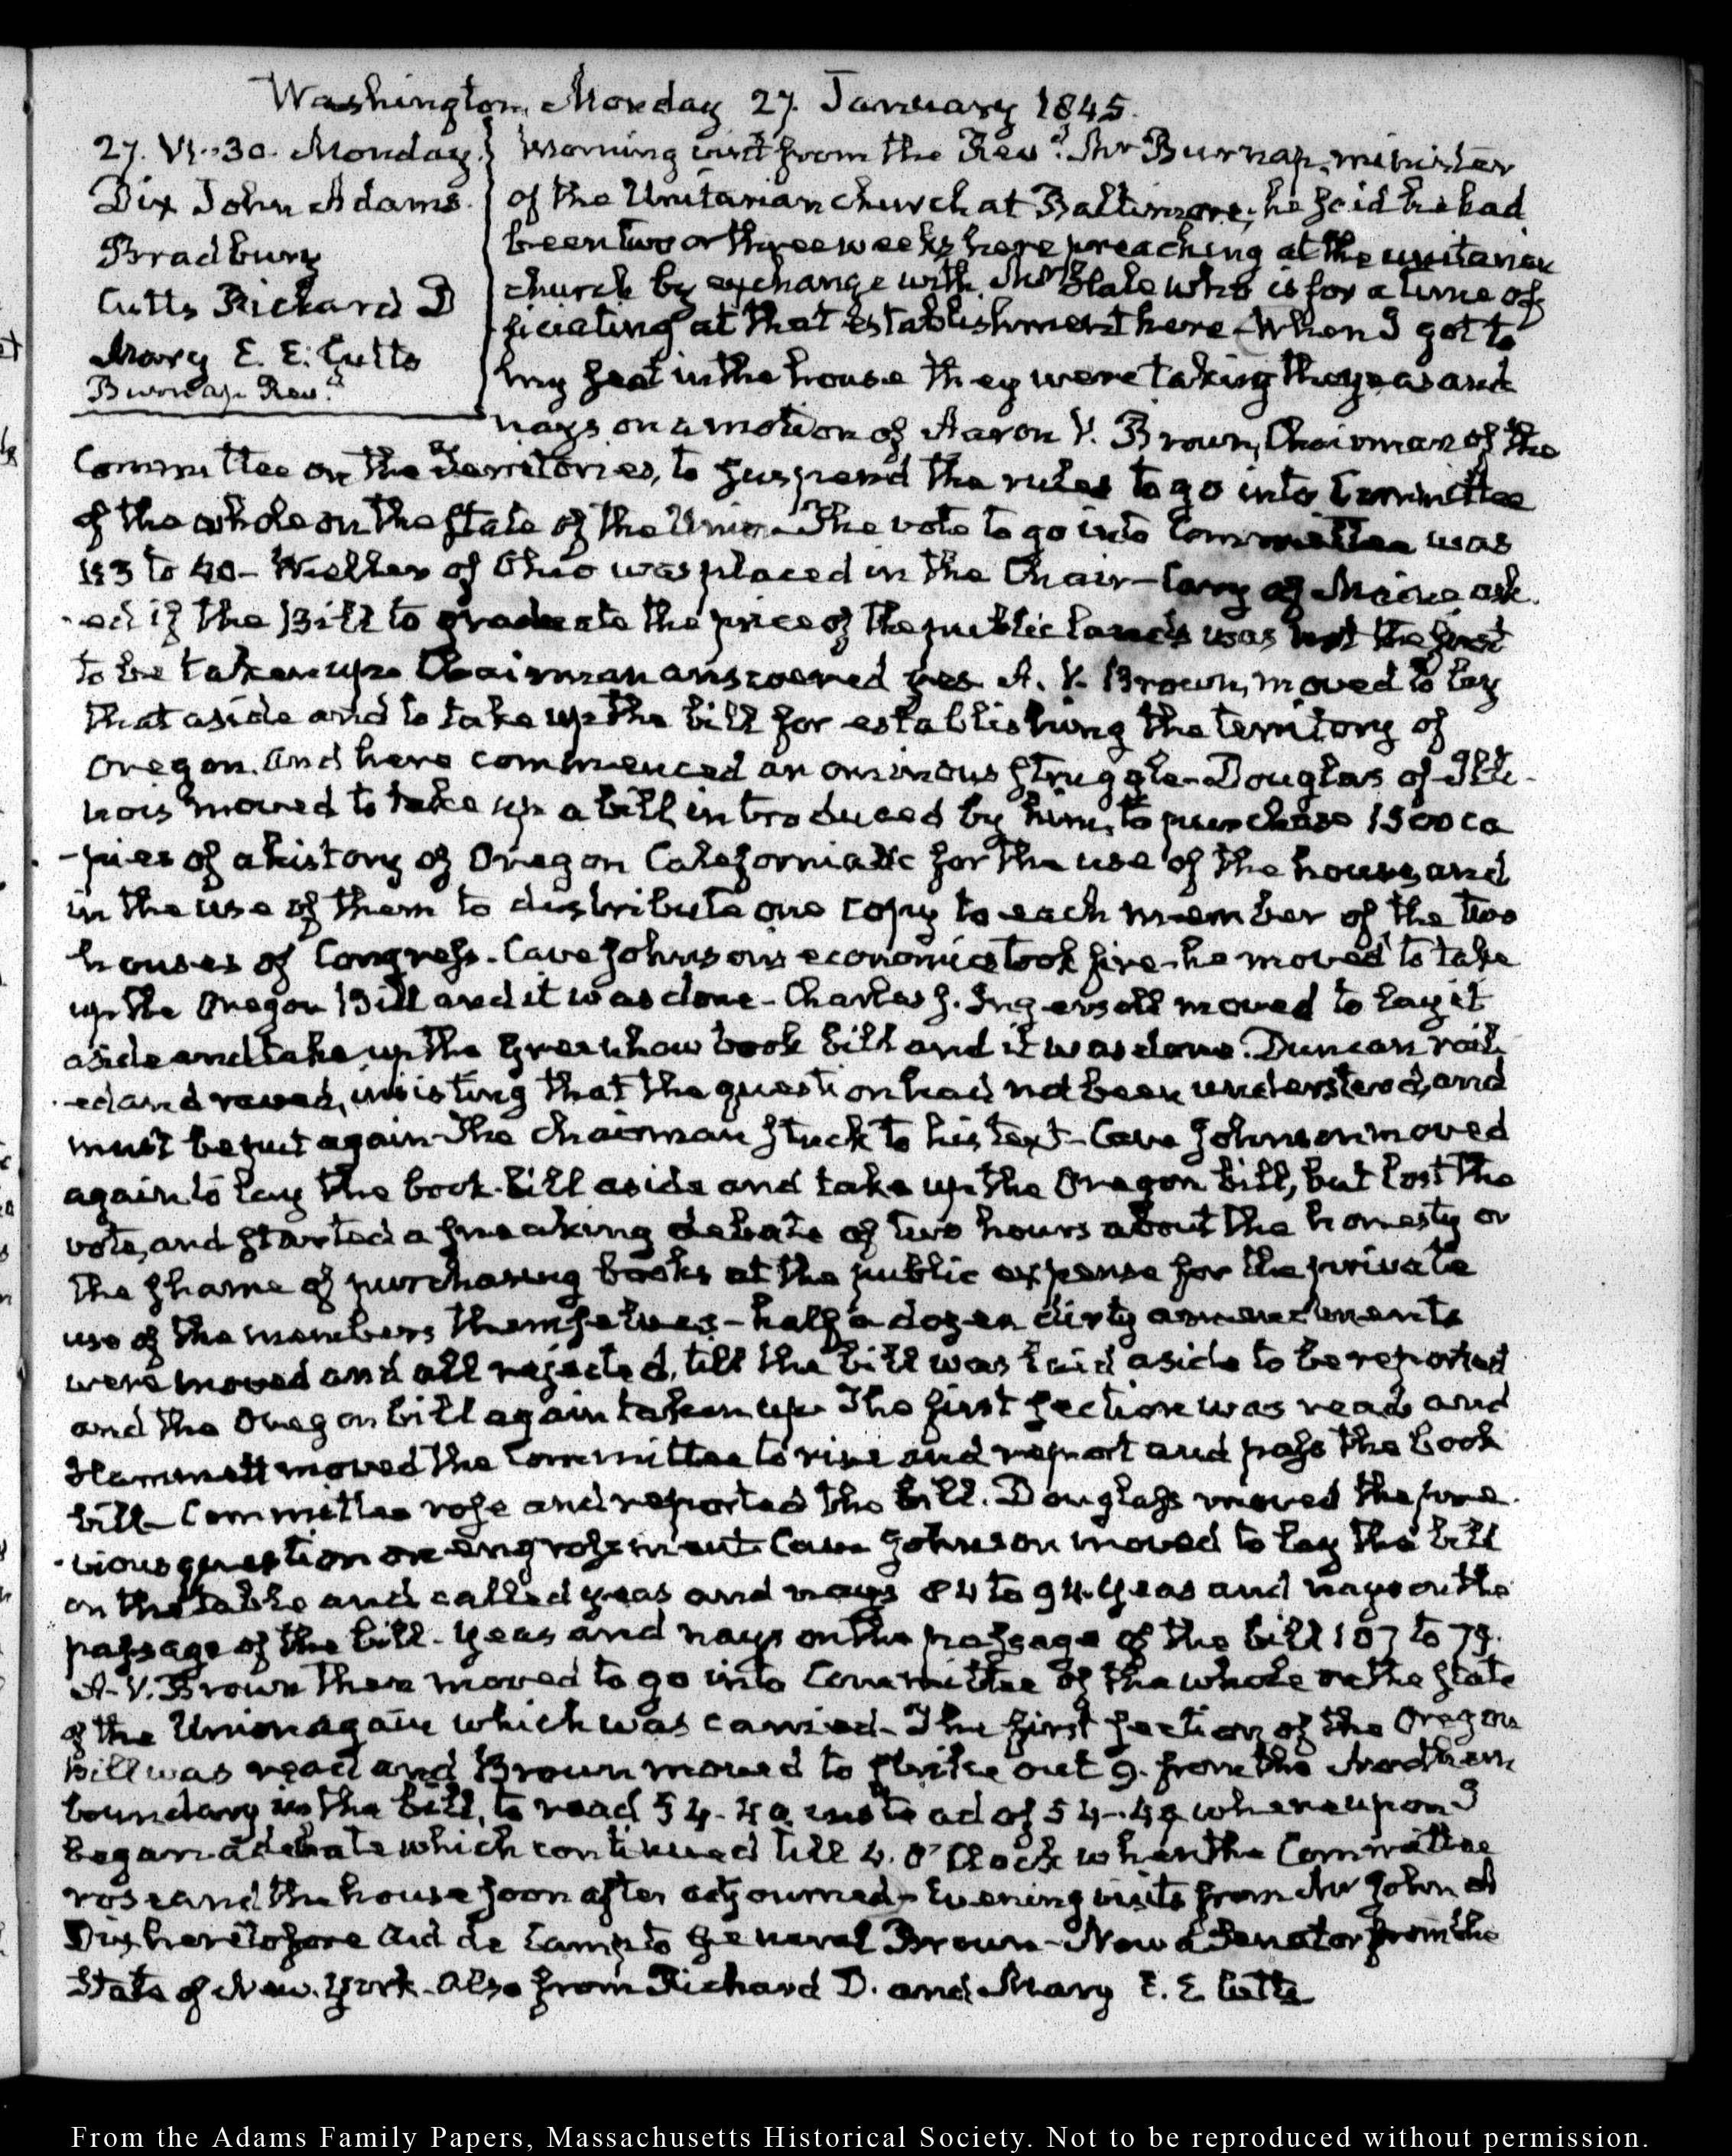 Washington, Monday 27. January 1845.
27. VI..30. Monday.
Dix John Adams.
Bradbury
Cutts Richard D
Mary E. E. Cutts
Burnap. Rev.d
Morning visit from the Rev.d Mr Burnap, minister
of the Unitarian church at Baltimore; he said he had
been two or three weeks here preaching at the unitarian
church by exchange with Mr who is for a time of
ficiating at that establishment here. When I got to
my seat in the house they were taking the yeas and
nays on a motion of Aaron V. Brown, Chairman of the
Committee on the Territories, to suspend the rules to go into Committee
of the whole on the state of the Union. The vote to go into Committee was
to 40 - Weller of Ohio was placed in the Chair - Cary of Maine ask
-ed if the Bill to graduate the price of the public lands was not the first
to be taken up. Chairman answered yes. A. V. Brown, moved to lay
that aside and to take up the bill for establishing the territory of
Oregon. And here commenced an ominous struggle - Douglas of Illi-
nois moved to take up a bill introduced by him, to purchase 1500 co
-pies of a history of Oregon California &c for the use of the house, and
in the use of them to distribute one copy to each member of the two
houses of Congress. Cave Johnson's economics took fire - he moved to take
up the Oregon Bill and it was done - Charles J. Ingersoll moved to lay it
aside and take up the Greenhow book bill and it was done. Duncan rail
-ed and raved, insisting that the question had not been understood, and
must be put again - The chairman stuck to his text - Cave Johnson moved
again to lay the book-bill aside and take up the Oregon bill, but lost the
vote, and started a sneaking debate of two hours about the honesty or
the shame of purchasing books at the public expense for the private
use of the members themselves - half a dozen dirty amendments
were moved and all rejected, till the bill was laid aside to be reported
and the Oregon bill again taken up. The first section was read and
Hammett moved the Committee to rise and report and pass the book
bill - Committee rose and reported the bill. Douglass moved the pre
-vious question on engrossment Cave Johnson moved to lay the bill
on the table and called yeas and nays 84 to 94. Yeas and nays on the
passage of the bill. Yeas and nays on the passage of the bill 107 to 79.
A. V. Brown then moved to go into Committee of the whole on the state
of the Union again which was carried - The first section of the Oregon
Bill was read and Brown moved to strike out 9. from the Northern
boundary in the bill, to read 54-40 instead of 54-49 whereupon I
began a debate which continued till 4. O'Clock when the Committee
rose and the house soon after adjourned - Evening visits from Mr John A
Dix heretofore aid de camp to General Brown - Now a Senator from the
State of New-York. Also from Richard D. and Mary E. E. Cutts
From the Adams Family Papers, Massachusetts Historical Society. Not to be reproduced without permission.